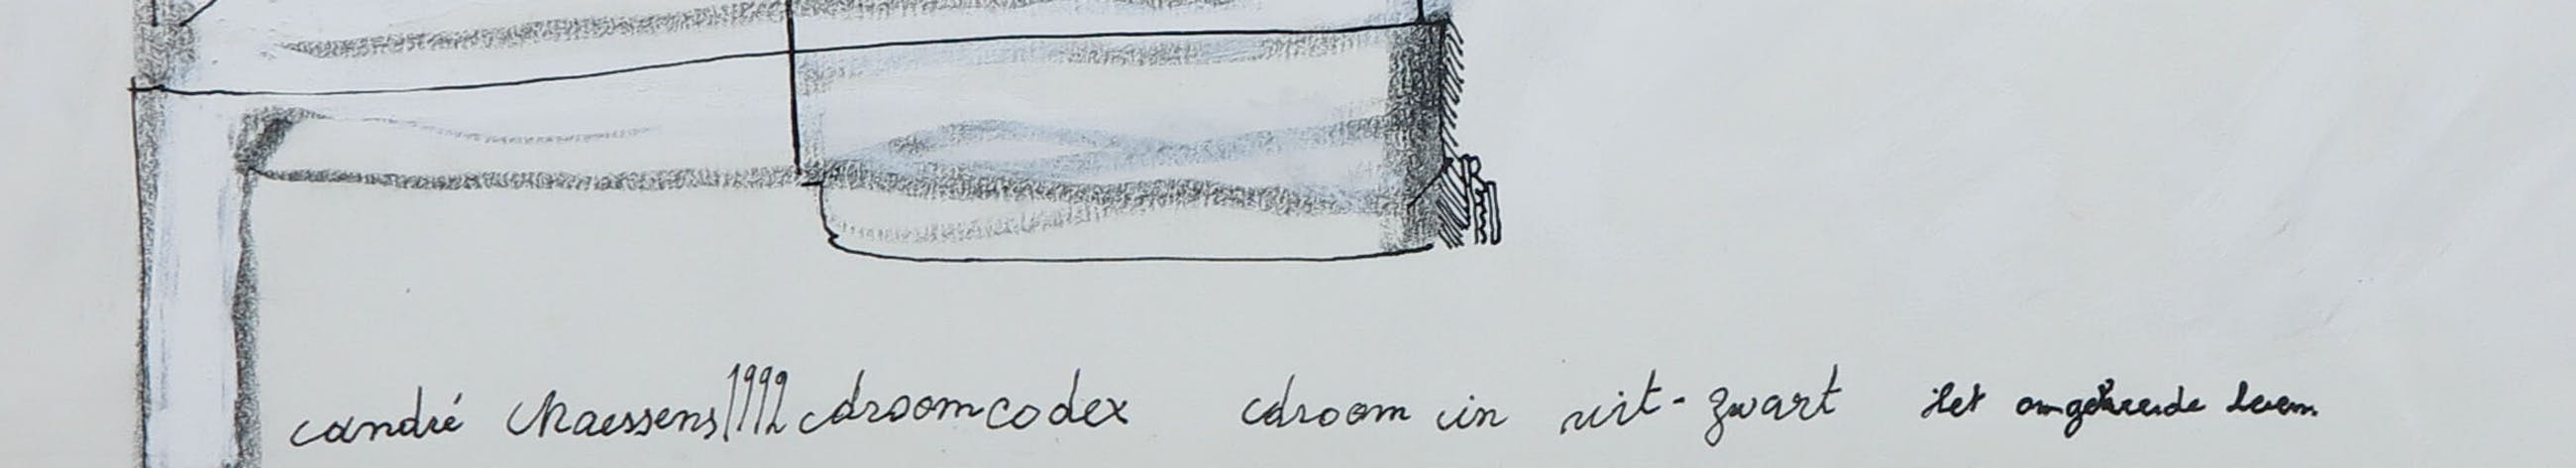 andré Maessens 1992 droomcodex droom in wit-zwart Het omgekeerde leven